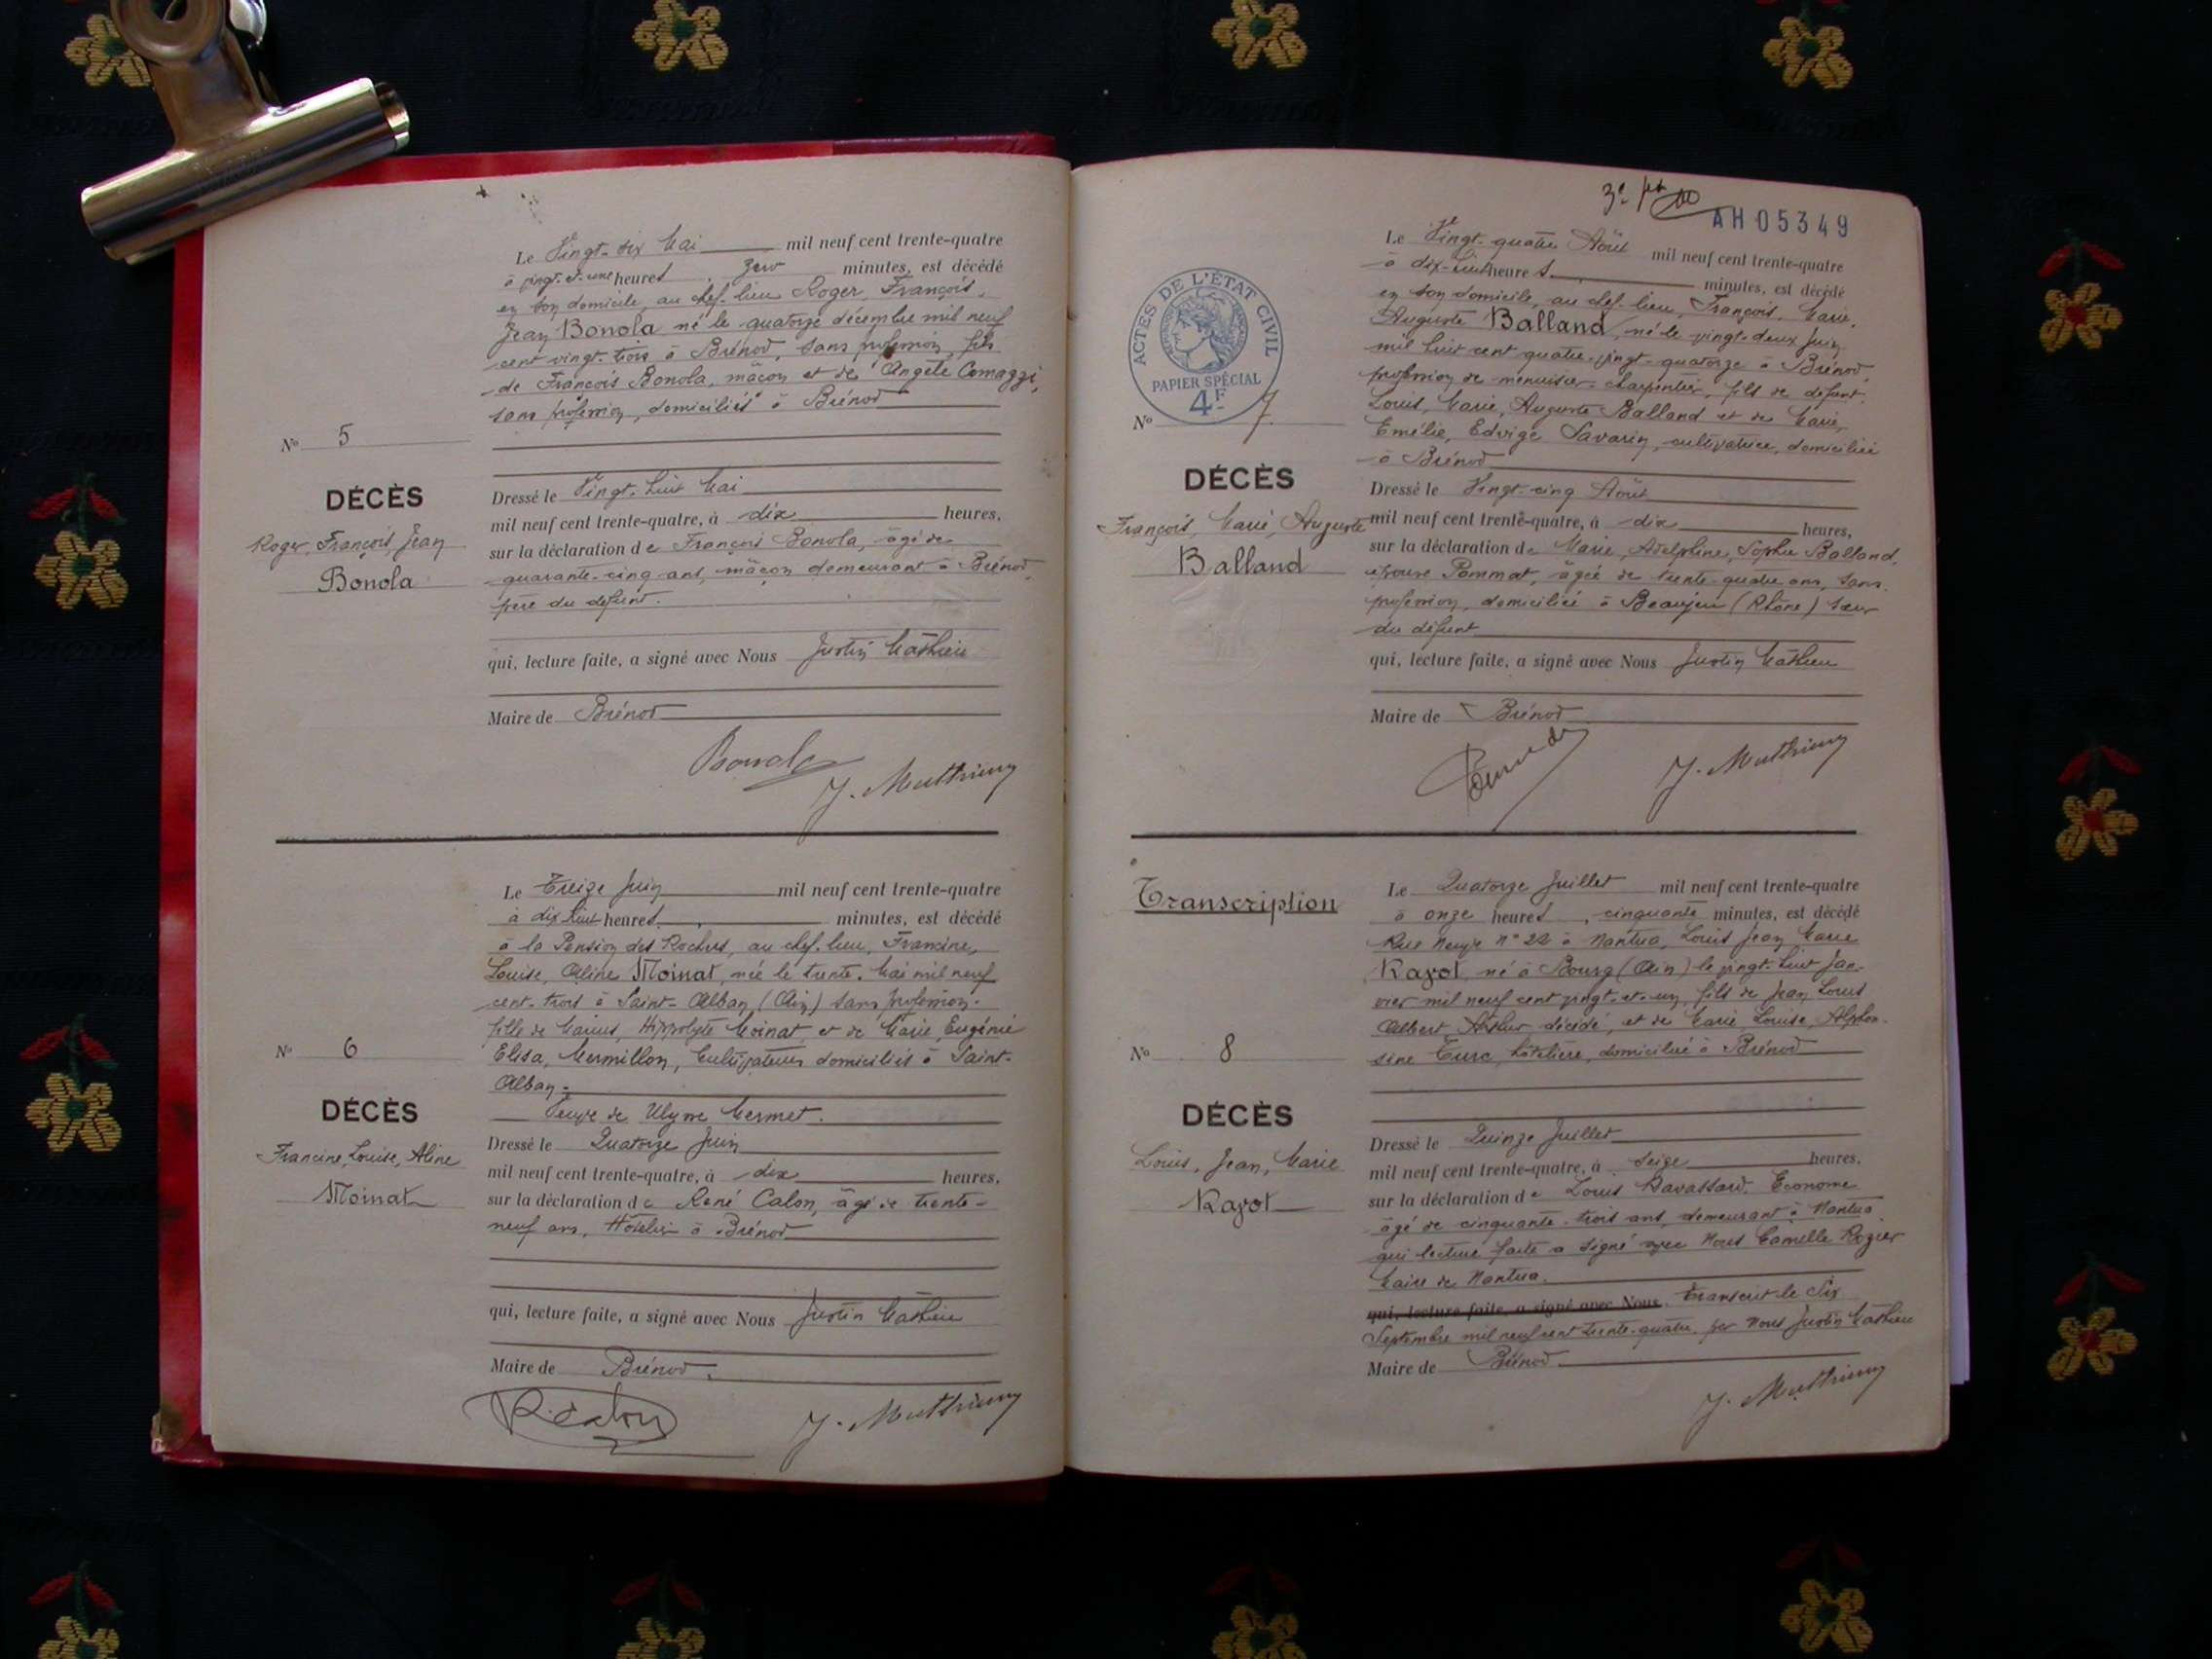 Le Vingt-six Mai mil neuf cent trente-quatre
à vingt-et-une heures, zéro minutes, est décédé
en son domicile, au chef-lieu Roger, François,
Jean Bonola né le quatorze décembre mil neuf
cent vingt-trois à Brénod, sans profession, fils
de François Bonola, maçon et de Angèle Comazzi,
sans profession, domiciliés à Brénod
N° 5
DÉCÈS
Roger, François, Jean
Bonola
Dressé le Vingt-huit Mai
mil neuf cent trente-quatre, à dix heures,
sur la déclaration de François Bonola, âgé de
quarante-cinq ans, maçon demeurant à Brénod,
père du défunt.
qui, lecture faite, a signé avec Nous Justin Mathieu
Maire de Brénod
Bonola
J. Mathieu
Le Treize Juin mil neuf cent trente-quatre
à dix huit heures, minutes, est décédé
à la Pension des Roches, au chef-lieu, Francine,
Louise, Aline Moinat, née le trente Mai mil neuf
cent-trois à Saint-Alban (Ain) sans profession.
fille de Marius, Hippolyte Moinat et de Marie, Eugénie
Elisa, Mermillon, Cultivateurs domiciliés à Saint-
Alban
Veuve de Ulysse Mermet.
N° 6
DÉCÈS
Francine, Louise, Aline
Moinat
Dressé le Quatorze Juin
mil neuf cent trente-quatre, à dix heures,
sur la déclaration de René Calon, âgé de trente-
neuf ans, Hôtelier à Brénod
qui, lecture faite, a signé avec Nous Justin Mathieu
Maire de Brénod
R. Calon
J. Mathieu
AH05349
Le Vingt-quatre Août mil neuf cent trente-quatre
à dix-huit heures minutes, est décédé
en son domicile, au chef-lieu, François, Marie,
Auguste Balland, né le vingt-deux Juin
mil huit cent quatre-vingt-quatorze à Brénod,
profession de menuisier-charpentier, fils de défunt
Louis, Marie, Auguste Balland et de Marie,
Emélie, Edvige Savarin, cultivatrice, domiciliée
à Brénod
ACTES DE L'ÉTAT CIVIL
RÉPUBLIQUE FRANÇAISE
PAPIER SPÉCIAL
4F
N° 7
DÉCÈS
François, Marie, Auguste
Balland
Dressé le Vingt-cinq Août
mil neuf cent trente-quatre, à dix heures,
sur la déclaration de Marie, Adelphine, Sophie Balland,
épouse Pommat, âgée de trente-quatre ans, sans
profession, domiciliée à Beaujeu (Rhône) sœur
du défunt
qui, lecture faite, a signé avec Nous Justin Mathieu
Maire de Brénod
J. Mathieu
Transcription
Le Quatorze Juillet mil neuf cent trente-quatre
à onze heures, cinquante minutes, est décédé
Rue Neuve n° 22 à Nantua, Louis Jean Marie
Ravot, né à Bourg (Ain) le vingt-huit Jan-
vier mil neuf cent vingt-et-un, fils de Jean Louis
Albert, Arthur décédé, et de Marie, Louise, Alphon-
sine Turc, hôtelière, domiciliée à Brénod
N° 8
DÉCÈS
Louis, Jean, Marie
Ravot
Dressé le Quinze Juillet
mil neuf cent trente-quatre, à seize heures,
sur la déclaration de Louis Ravassard, Econome
âgé de cinquante-trois ans, demeurant à Nantua
qui lecture faite a signé avec Nous Camille Rozier
Maire de Nantua.
qui, lecture faite, a signé avec Nous. Transcrit le Six
Septembre mil neuf cent trente-quatre, par Nous Justin Mathieu
Maire de Brénod
J. Mathieu